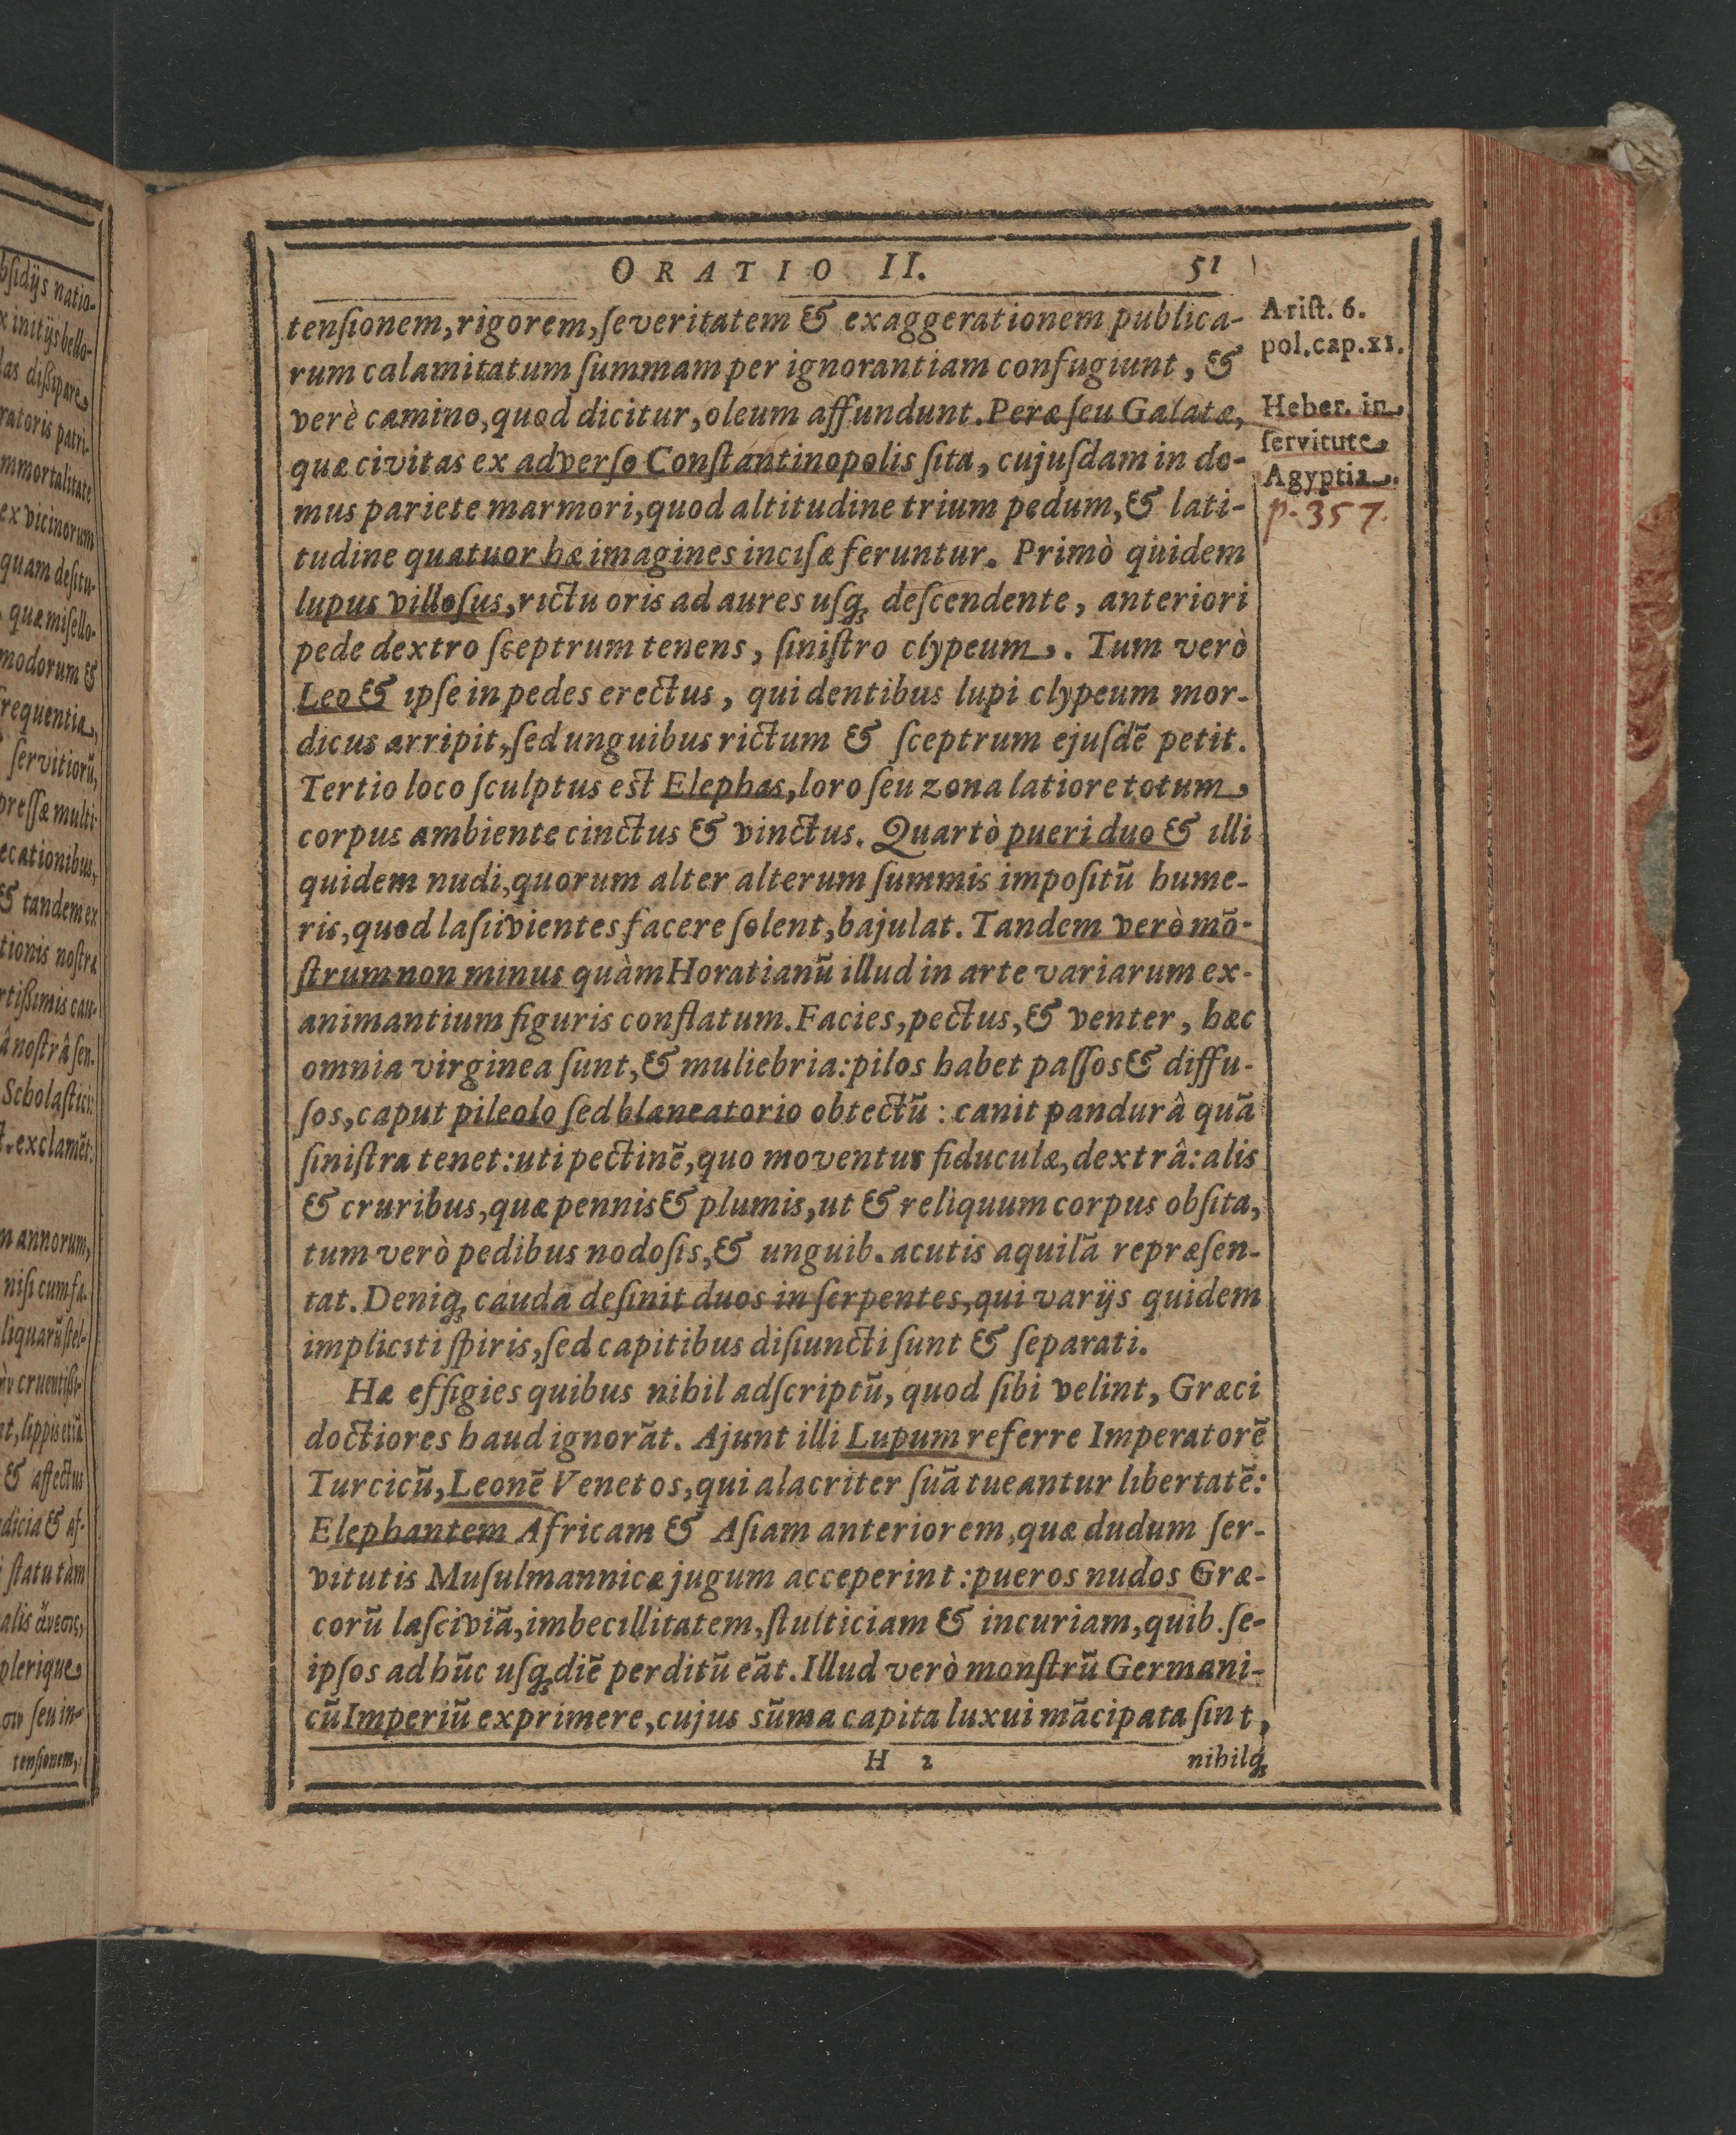 ORATIO II. 51
tenſionem, rigorem, ſeveritatem & exaggerationem publica-
rum calamitatum ſummam per ignorantiam confugiunt, &
verè camino, quod dicitur, oleum affundunt. Peræ ſeu Galatæ,
quæ civitas ex adverſo Conſtantinopolis ſita, cujuſdam in do-
mus pariete marmori, quod altitudine trium pedum, & lati-
tudine quatuor hæ imagines inciſæ feruntur. Primò quidem
lupus villoſus, rictu oris ad aures uſq; deſcendente, anteriori
pede dextro ſceptrum tenens, ſiniſtro clypeum. Tum verò
Leo & ipſe in pedes erectus, qui dentibus lupi clypeum mor-
dicus arripit, ſed unguibus rictum & ſceptrum ejuſdē petit.
Tertio loco ſculptus est Elephas, loro ſeu zona latiore totum
corpus ambiente cinctus & vinctus. Quartò pueri duo & illi
quidem nudi, quorum alter alterum ſummis impoſitū hume-
ris, quod laſiivientes facere ſolent, bajulat. Tandem verò mō-
ſtrum non minus quàm Horatianū illud in arte variarum ex-
animantium figuris conflatum. Facies, pectus, & venter, hæc
omnia virginea ſunt, & muliebria: pilos habet paſſos & diffu-
ſos, caput pileolo ſed blaneatorio obtectū: canit pandurâ quā
ſiniſtra tenet: uti pectinē, quo moventur fiduculæ, dextrâ: alis
& cruribus, quæ pennis & plumis, ut & reliquum corpus obſita,
tum verò pedibus nodoſis, & unguib. acutis aquilā repræſen-
tat. Deniq; cauda deſinit duos in ſerpentes, qui varijs quidem
impliciti ſpiris, ſed capitibus diſiuncti ſunt & ſeparati.
Hæ effigies quibus nihil adſcriptū, quod ſibi velint, Græci
doctiores haud ignorāt. Ajunt illi Lupum referre Imperatorē
Turcicū, Leonē Venetos, qui alacriter ſuā tueantur libertatē:
Elephantem Africam & Aſiam anteriorem, quæ dudum ſer-
vitutis Muſulmannicæ jugum acceperint: pueros nudos Græ-
corū laſciviā, imbecillitatem, ſtulticiam & incuriam, quib. ſe-
ipſos ad hūc uſq; diē perditū eāt. Illud verò monſtrū Germani-
cū Imperiū exprimere, cujus sūma capita luxui mācipata ſint,
H 2 nihilq;
Ariſt. 6.
pol. cap. xi.
Heber. in
ſervitute
Agyptia.
p. 357.
bſidijs natio-
x initijs bello-
las diſſipare
ratoris patri-
mmortalitate
ex vicinorum
quam deſitu-
quæ miſello-
modorum &
requentia,
ſervitiorū,
preſſæ multi
ecationibus,
& tandem ex
tionis noſtra
rtiſſimis cau-
â noſtrâ ſen-
Scholaſtici:
exclamēt.
m annorum,
niſi cum ſa-
liquarū ſtel-
cruentiſſi-
nt, lippis etiā
& affectus
dicia & af-
ſtatu tàm
plerique
ſeu in-
tenſionem,